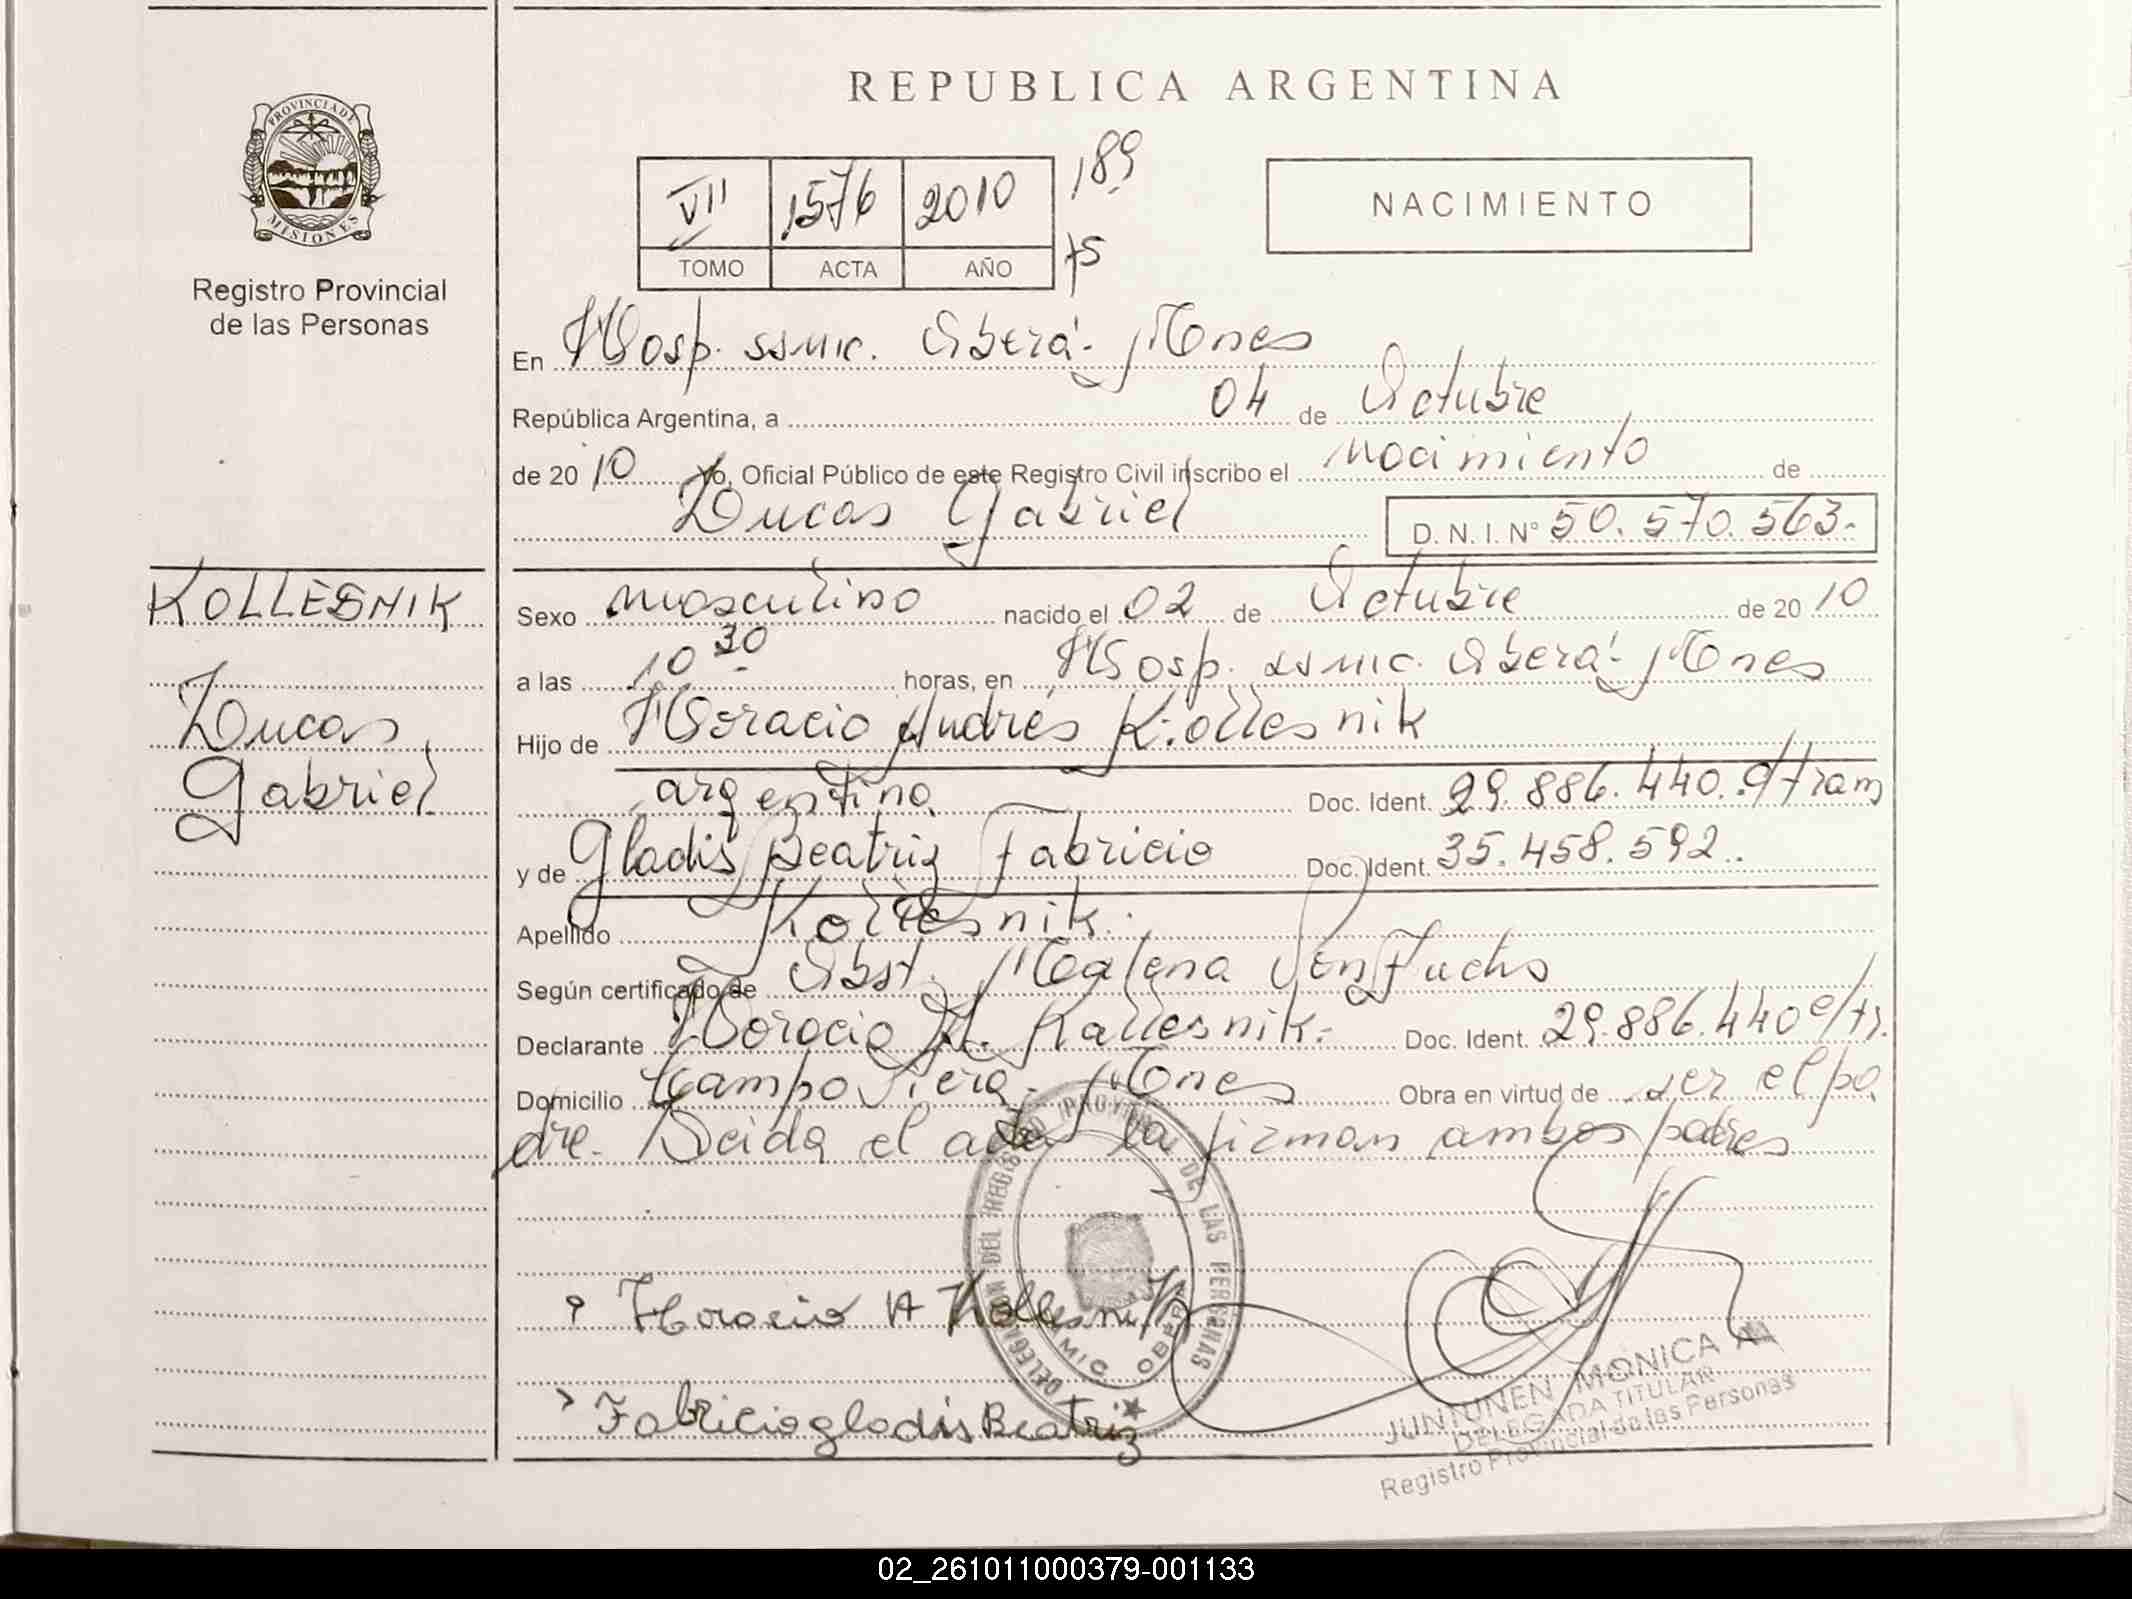 REPUBLICA ARGENTINA
PROVINCIA DE
MISIONES
Registro Provincial
de las Personas
VII 1576 2010 189
TOMO ACTA AÑO 75
NACIMIENTO
En Hosp. ssmic. Oberá- Mnes
República Argentina, a 04 de Octubre
de 20 10 Yo, Oficial Público de este Registro Civil inscribo el nacimiento de
Lucas Gabriel D. N. I. N° 50.570.563.-
KOLLESNIK
Lucas
Gabriel
Sexo masculino nacido el 02 de Octubre de 20 10
a las 10 30 horas, en Hosp. ssmic. Oberá- Mnes
Hijo de Horacio Andrés Kollesnik
argentino Doc. Ident. 29.886.440. e/tram
y de Gladis Beatriz Fabricio Doc. Ident. 35.458.592..
Apellido Kollesnik.
Según certificado de Obst. Malena
Declarante Horacio A. Kollesnik.- Doc. Ident. 29.886.440 e/tr.
Domicilio Campo Viera- Mnes Obra en virtud de ser el pa
dre. Leida el acta la firman ambos padres
DELEGACION DEL REGISTRO PROVINCIAL DE LAS PERSONAS
MIC. OBERA
Horacio A Kollesnik
Fabricio gladis Beatriz
JUNTUNEN MONICA A.
DELEGADA TITULAR
Registro Provincial de las Personas
02_261011000379-001133